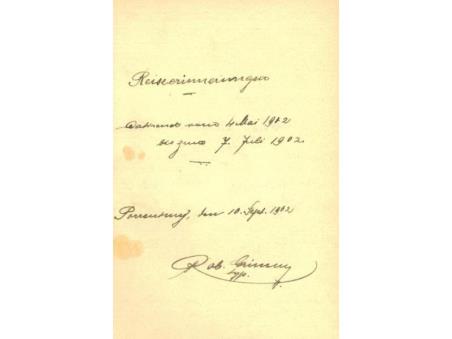 Reiseerinnerungen
datirend vom 4 Mai 1902
bis zum 7. Juli 1902
Porrentruy, den 10. Sept. 1902
Rob. Grimm
typ.